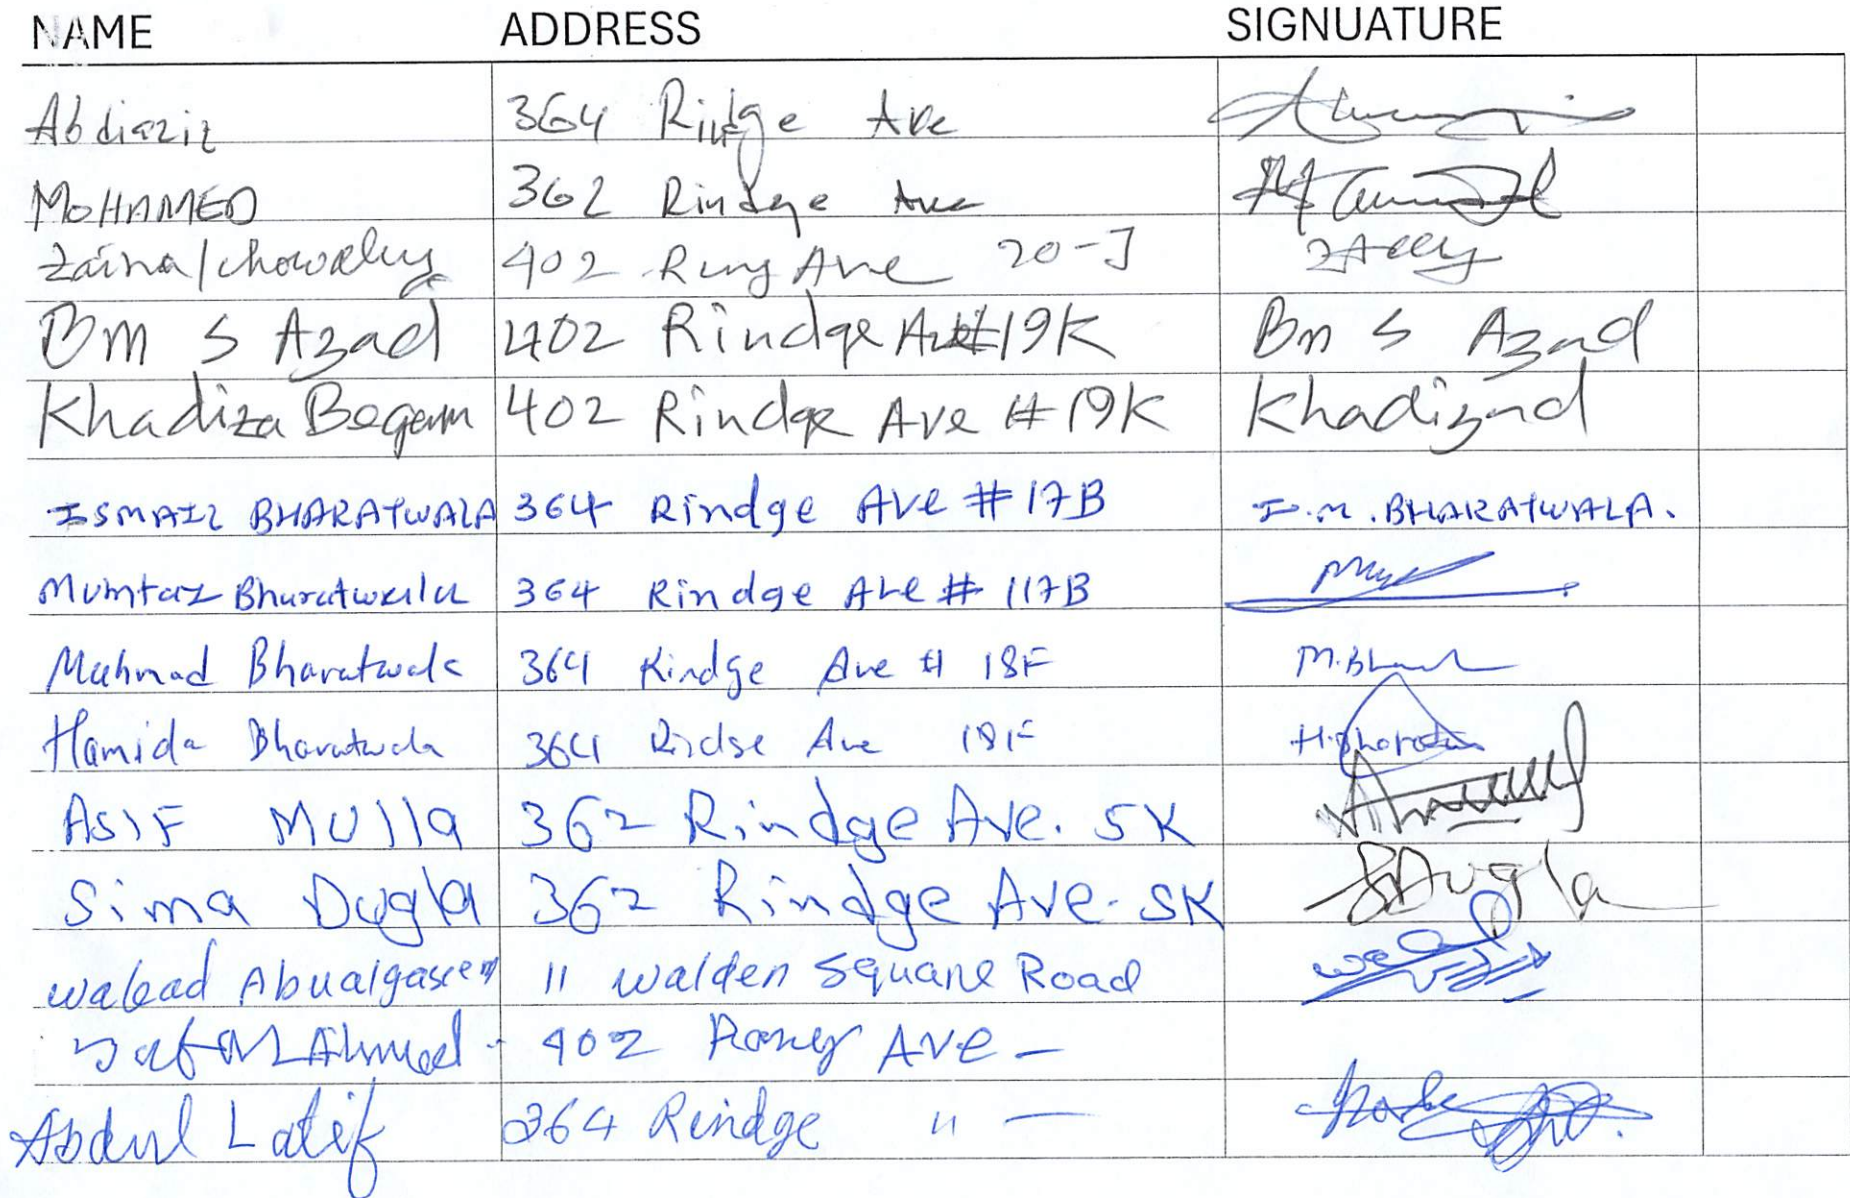 NAME ADDRESS SIGNUATURE
Abdiaziz 364 Rindge Ave
MOHAMED 362 Rindge Ave
Zaina/chowdhy 402 Ring Ave 20-J
Bm S Azad 402 Rindge Ave#19K Bm S Azad
Khadiza Begam 402 Rindge Ave #19K Khadizad
ISMAIL BHARATWALA 364 Rindge Ave #17B I.M.BHARATWALA.
Mumtaz Bharatwala 364 Rindge Ave # 117B
Mahmad Bharatwala 364 Rindge Ave # 18F M.Bha
Hamida Bharatwala 364 Rindge Ave 18F H.Bharatw
ASIF MUlla 362 Rindge Ave. 5K
Sima Dugla 362 Rindge Ave. 5K SDugla
walead Abualgaseem 11 walden Square Road
Ahmed - 402 AVE -
Abdul Latif 364 Rindge " -